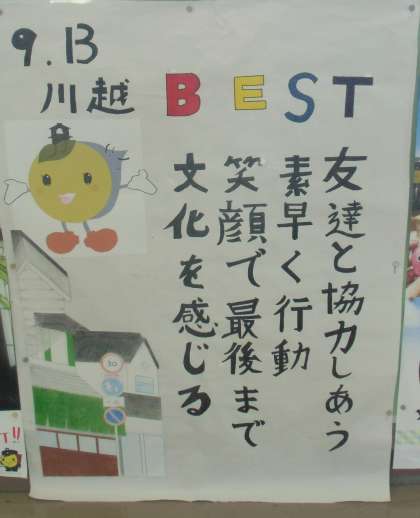 9.13
川越 BEST
友達と協力しあう
素早く行動
笑顔で最後まで
文化を感じる